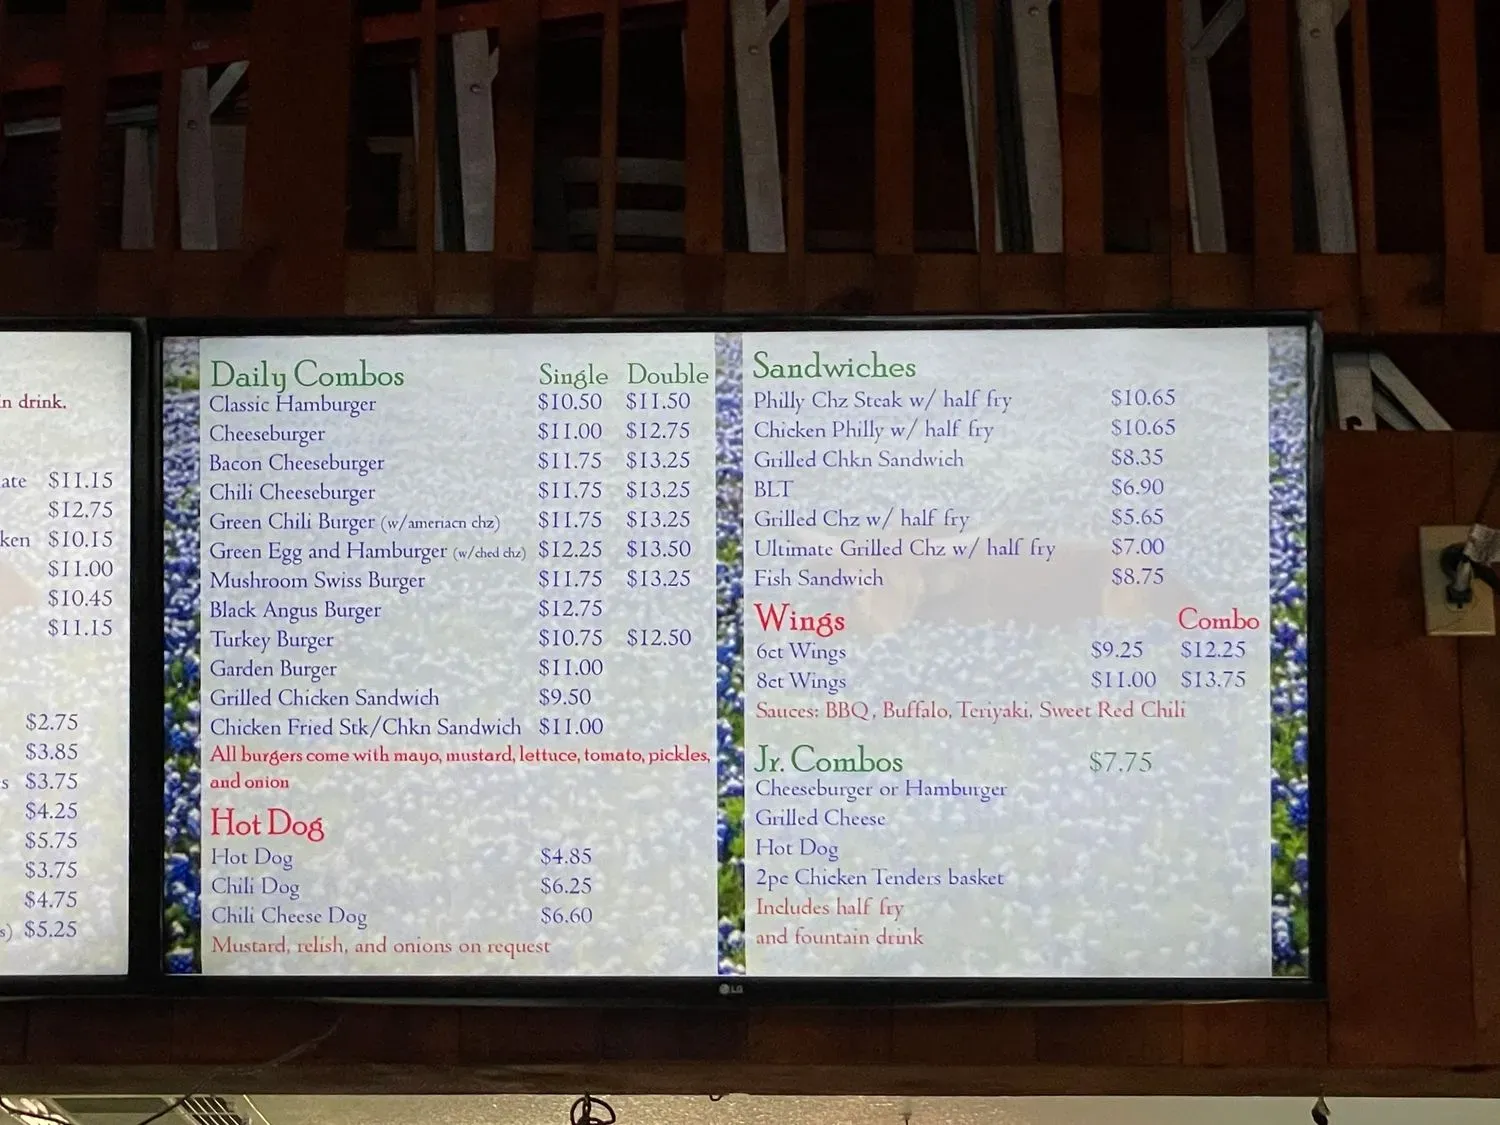 n drink.
ate $11.15
$12.75
ken $10.15
$11.00
$10.45
$11.15
$2.75
$3.85
s $3.75
$4.25
$5.75
$3.75
$4.75
s) $5.25
Daily Combos Single Double
Classic Hamburger $10.50 $11.50
Cheeseburger $11.00 $12.75
Bacon Cheeseburger $11.75 $13.25
Chili Cheeseburger $11.75 $13.25
Green Chili Burger (w/ameriacn chz) $11.75 $13.25
Green Egg and Hamburger (w/ched chz) $12.25 $13.50
Mushroom Swiss Burger $11.75 $13.25
Black Angus Burger $12.75
Turkey Burger $10.75 $12.50
Garden Burger $11.00
Grilled Chicken Sandwich $9.50
Chicken Fried Stk/Chkn Sandwich $11.00
All burgers come with mayo, mustard, lettuce, tomato, pickles,
and onion
Hot Dog
Hot Dog $4.85
Chili Dog $6.25
Chili Cheese Dog $6.60
Mustard, relish, and onions on request
Sandwiches
Philly Chz Steak w/ half fry $10.65
Chicken Philly w/ half fry $10.65
Grilled Chkn Sandwich $8.35
BLT $6.90
Grilled Chz w/ half fry $5.65
Ultimate Grilled Chz w/ half fry $7.00
Fish Sandwich $8.75
Wings Combo
6ct Wings $9.25 $12.25
8ct Wings $11.00 $13.75
Sauces: BBQ, Buffalo, Teriyaki, Sweet Red Chili
Jr. Combos $7.75
Cheeseburger or Hamburger
Grilled Cheese
Hot Dog
2pc Chicken Tenders basket
Includes half fry
and fountain drink
LG